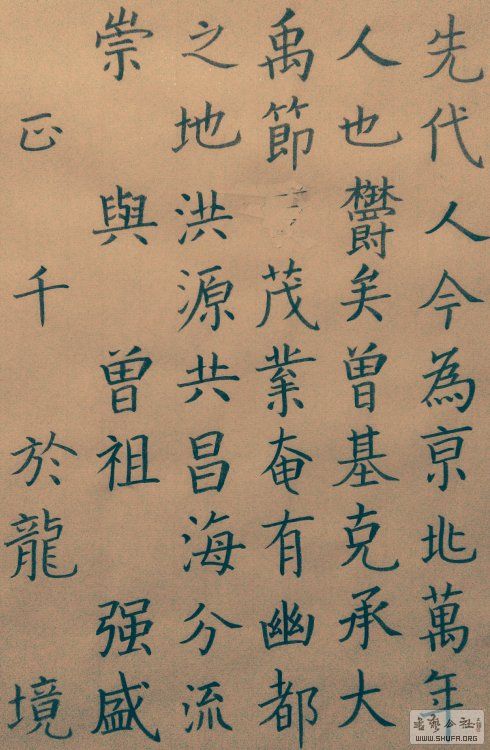 先代人今為京兆萬年
人也欝矣曾基克承大
禹節茂業奄有幽都
之地洪源共昌海分流
崇 與 曽祖 强盛
正 千 於龍 境
公社
WWW.SHUFA.ORG